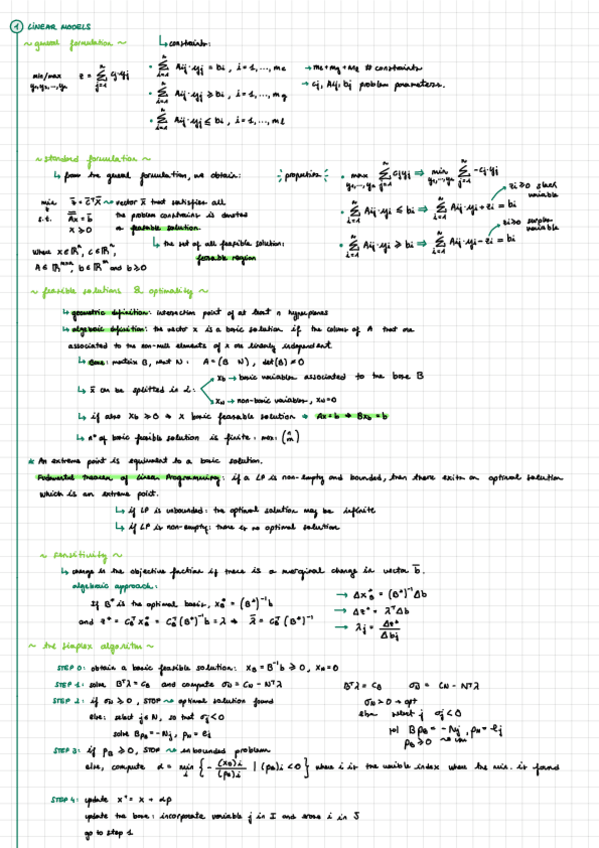 1 LINEAR MODELS
~ general formulation ~
↳ constraints:
min/max y₁, y₂, ..., yₙ z = Σⁿⱼ₌₁ cj yj
• Σ Aij · yj = bi , i = 1, ..., me
• Σ Aij · yj ≥ bi , i = 1, ..., mg
• Σ Aij · yj ≤ bi , i = 1, ..., ml
→ me + mg + ml # constraints
→ cj, Aij, bj problem parameters.
~ standard formulation ~
↳ from the general formulation, we obtain:
min
s.t. Ax = b
x ≥ 0
~> vector x̄ that satisfies all
the problem constraints is denoted
a feasible solution.
↳ the set of all feasible solution:
feasible region
where x ∈ ℝⁿ, c ∈ ℝⁿ,
A ∈ ℝᵐˣⁿ, b ∈ ℝᵐ and b ≥ 0
properties
• max y₁, ..., yₙ Σ cj yj ⇒ min y₁, ..., yₙ Σ -cj yj
zi ≥ 0 slack variable
• Σ Aij · yj ≤ bi ⇒ Σ Aij · yj + zi = bi
zi ≥ 0 surplus variable
• Σ Aij · yj ≥ bi ⇒ Σ Aij · yj - zi = bi
~ feasible solutions & optimality ~
↳ geometric definition: intersection point of at least n hyperplanes
↳ algebraic definition: the vector x is a basic solution if the colums of A that are
associated to the non-null elements of x are linearly independent.
↳ Base: matrix B, N: A = (B N), det(B) ≠ 0
↳ x̄ can be splitted in 2:
xB → basic variables associated to the base B
xN → non-basic variables, xN = 0
↳ if also xB ≥ 0 → x basic feasable solution → Ax = b → BxB = b
↳ n° of basic feasible solution is finite: max: (n m)
* An extreme point is equivalent to a basic solution.
Fundamental theorem of Linear Programming: if a LP is non-empty and bounded, then there exists an optimal solution
which is an extreme point.
↳ if LP is unbounded: the optimal solution may be infinite
↳ if LP is non-empty: there is no optimal solution
~ sensitivity ~
↳ change in the objective function if there is a marginal change in vector b̄.
algebraic approach:
If B* is the optimal basis, x*B = (B*)⁻¹b
and z* = cBᵀ x*B = cBᵀ (B*)⁻¹b = λ → λ̄ = cBᵀ (B*)⁻¹
→ Δx*B = (B*)⁻¹Δb
→ Δz* = λᵀΔb
→ λj = Δz* / Δbj
~ the simplex algorithm ~
STEP 0: obtain a basic feasible solution: xB = B⁻¹b ≥ 0, xN = 0
STEP 1: solve Bᵀλ = cB and compute σN = cN - Nᵀλ
STEP 2: if σN ≥ 0, STOP ~> optimal solution found
else: select j ∈ N, so that σj < 0
solve BpB = -Nj, pN = ej
Bᵀλ = cB σN = cN - Nᵀλ
σN > 0 → opt
else select j σj < 0
sol BpB = -Nj, pN = ej
pB ≥ 0
STEP 3: if pB ≥ 0, STOP ~> unbounded problem
else, compute α = min i { - (xB)i / (pB)i | (pB)i < 0 } where i is the variable index where the min. is found
STEP 4: update x⁺ = x + αp
update the base: incorporate variable j in I and erase i in J
go to step 1